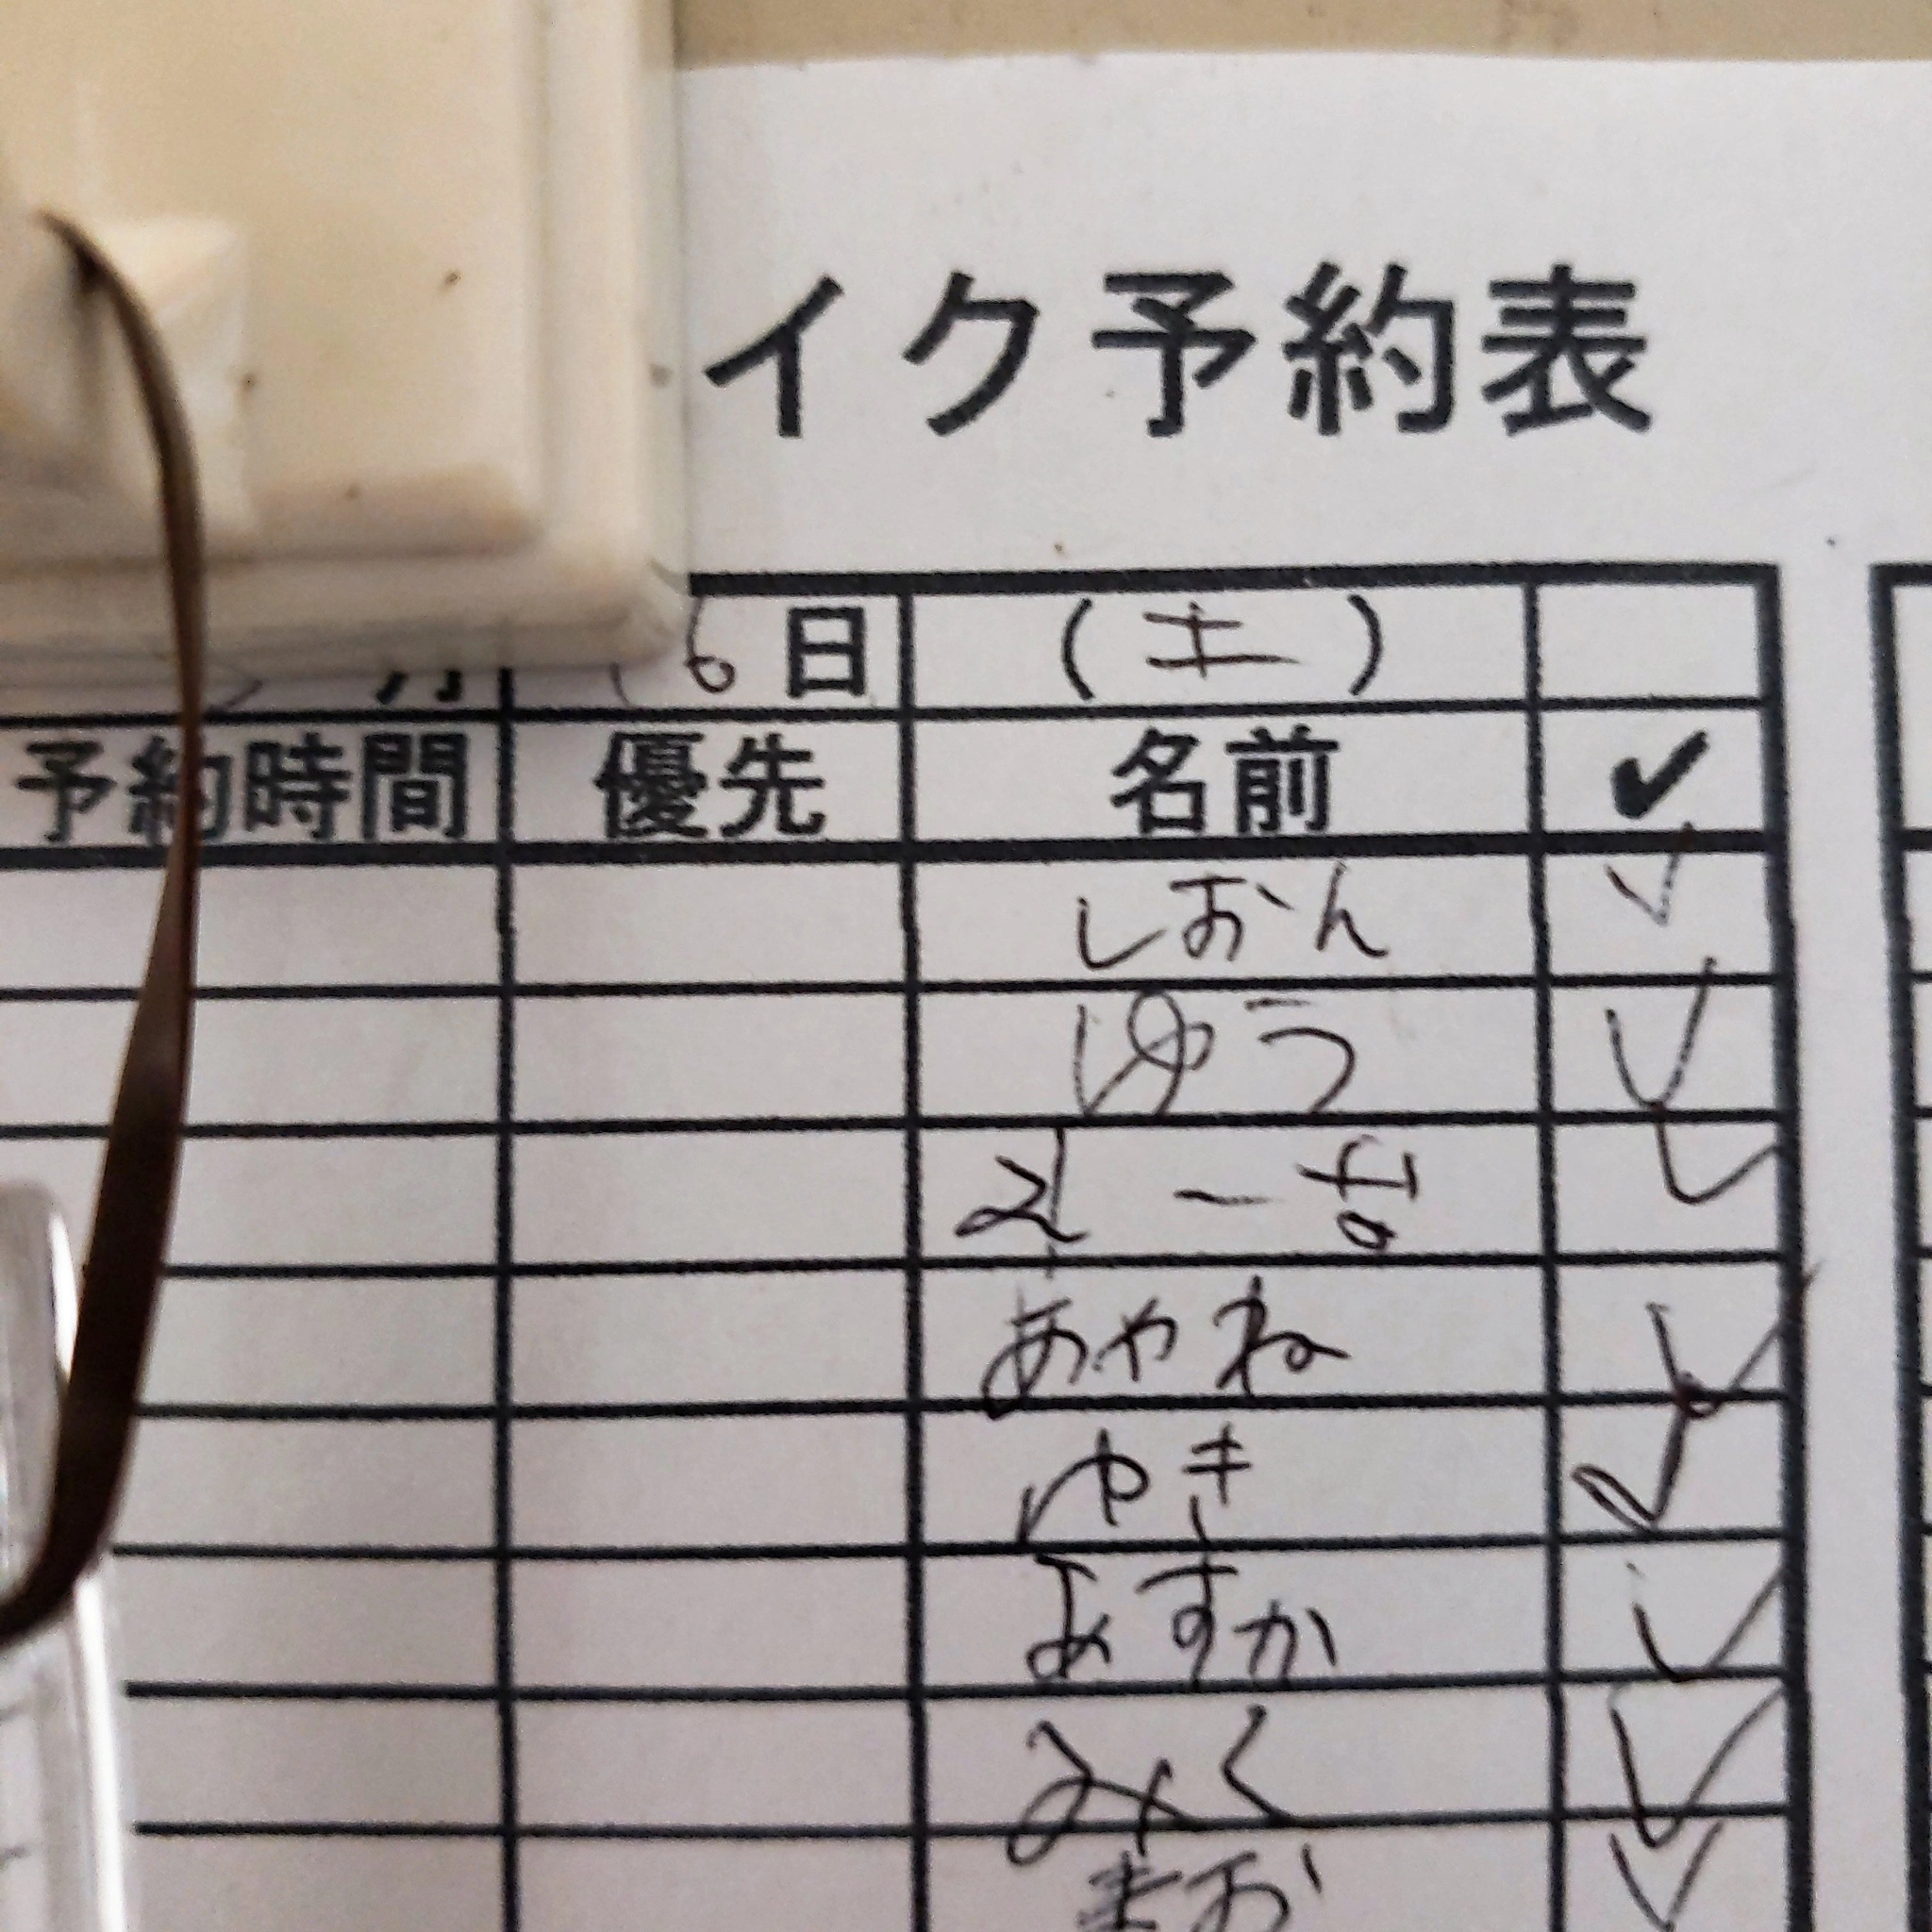 イク予約表
月 16日 (土)
予約時間 優先 名前 ✔
しおん ✓
ゆう ✓
✓
あやね ✓
ゆき ✓
あすか ✓
みく ✓
まお ✓